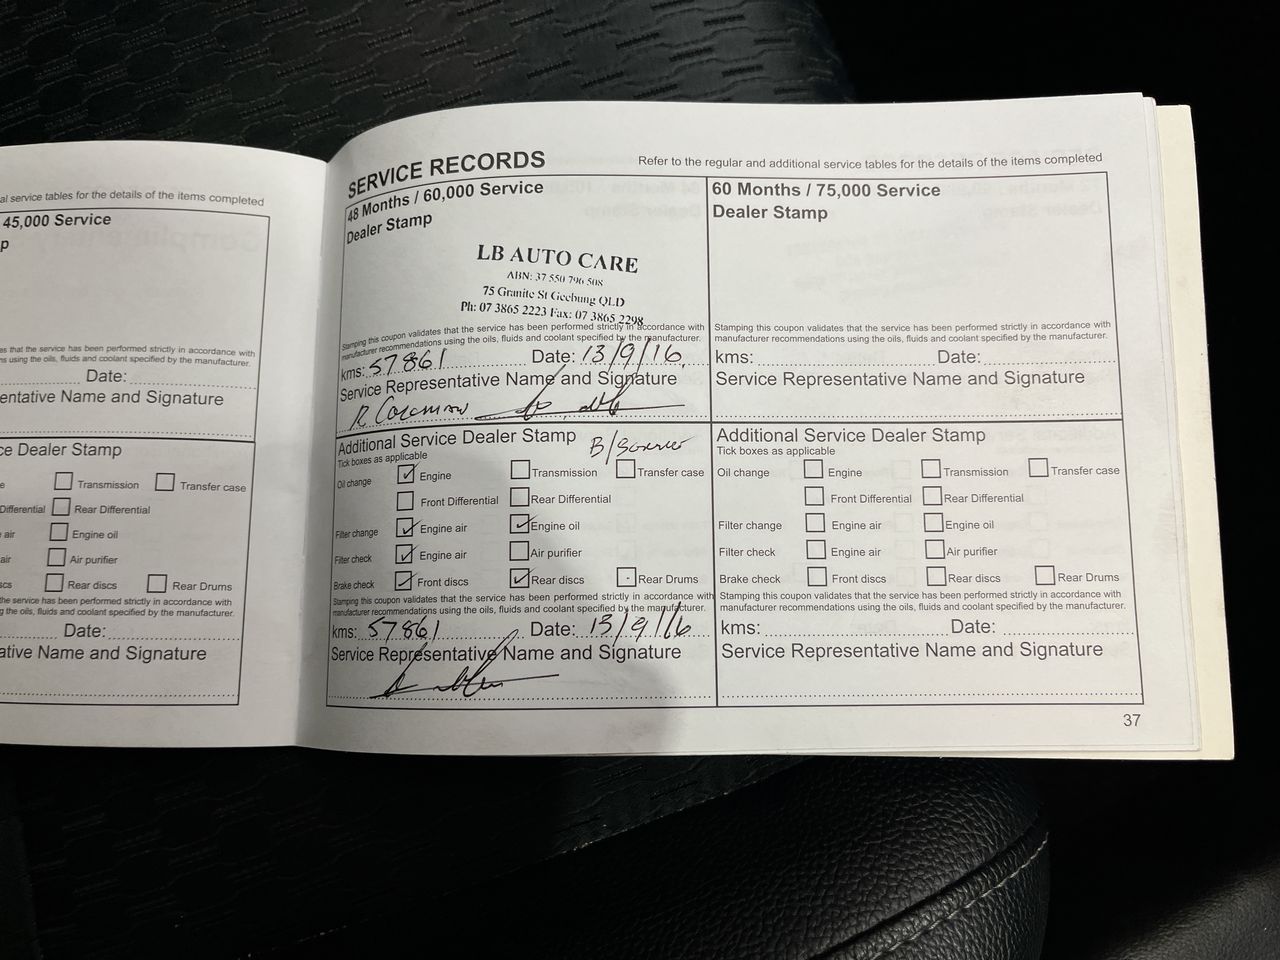 al service tables for the details of the items completed
45,000 Service
p
es that the service has been performed strictly in accordance with
ns using the oils, fluids and coolant specified by the manufacturer.
Date:
entative Name and Signature
ce Dealer Stamp
e Transmission Transfer case
Differential Rear Differential
air Engine oil
air Air purifier
scs Rear discs Rear Drums
the service has been performed strictly in accordance with
g the oils, fluids and coolant specified by the manufacturer.
Date:
ative Name and Signature
SERVICE RECORDS
Refer to the regular and additional service tables for the details of the items completed
48 Months / 60,000 Service
Dealer Stamp
LB AUTO CARE
ABN: 37 550 796 508
75 Granite St Geebung QLD
Ph: 07 3865 2223 Fax: 07 3865 2298
Stamping this coupon validates that the service has been performed strictly in accordance with
manufacturer recommendations using the oils, fluids and coolant specified by the manufacturer.
kms: 57861 Date: 13/9/16
Service Representative Name and Signature
R
Additional Service Dealer Stamp
B/
Tick boxes as applicable
Oil change Engine Transmission Transfer case
Front Differential Rear Differential
Filter change Engine air Engine oil
Filter check Engine air Air purifier
Brake check Front discs Rear discs Rear Drums
Stamping this coupon validates that the service has been performed strictly in accordance with
manufacturer recommendations using the oils, fluids and coolant specified by the manufacturer.
kms: 57861 Date: 13/9/16
Service Representative Name and Signature
60 Months / 75,000 Service
Dealer Stamp
Stamping this coupon validates that the service has been performed strictly in accordance with
manufacturer recommendations using the oils, fluids and coolant specified by the manufacturer.
kms: Date:
Service Representative Name and Signature
Additional Service Dealer Stamp
Tick boxes as applicable
Oil change Engine Transmission Transfer case
Front Differential Rear Differential
Filter change Engine air Engine oil
Filter check Engine air Air purifier
Brake check Front discs Rear discs Rear Drums
Stamping this coupon validates that the service has been performed strictly in accordance with
manufacturer recommendations using the oils, fluids and coolant specified by the manufacturer.
kms: Date:
Service Representative Name and Signature
37